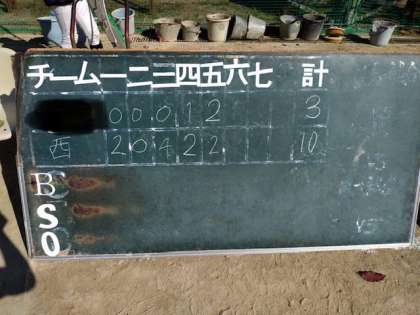 チーム 一 二 三 四 五 六 七 計
0 0 0 1 2 3
西 2 0 4 2 2 10
B
S
O